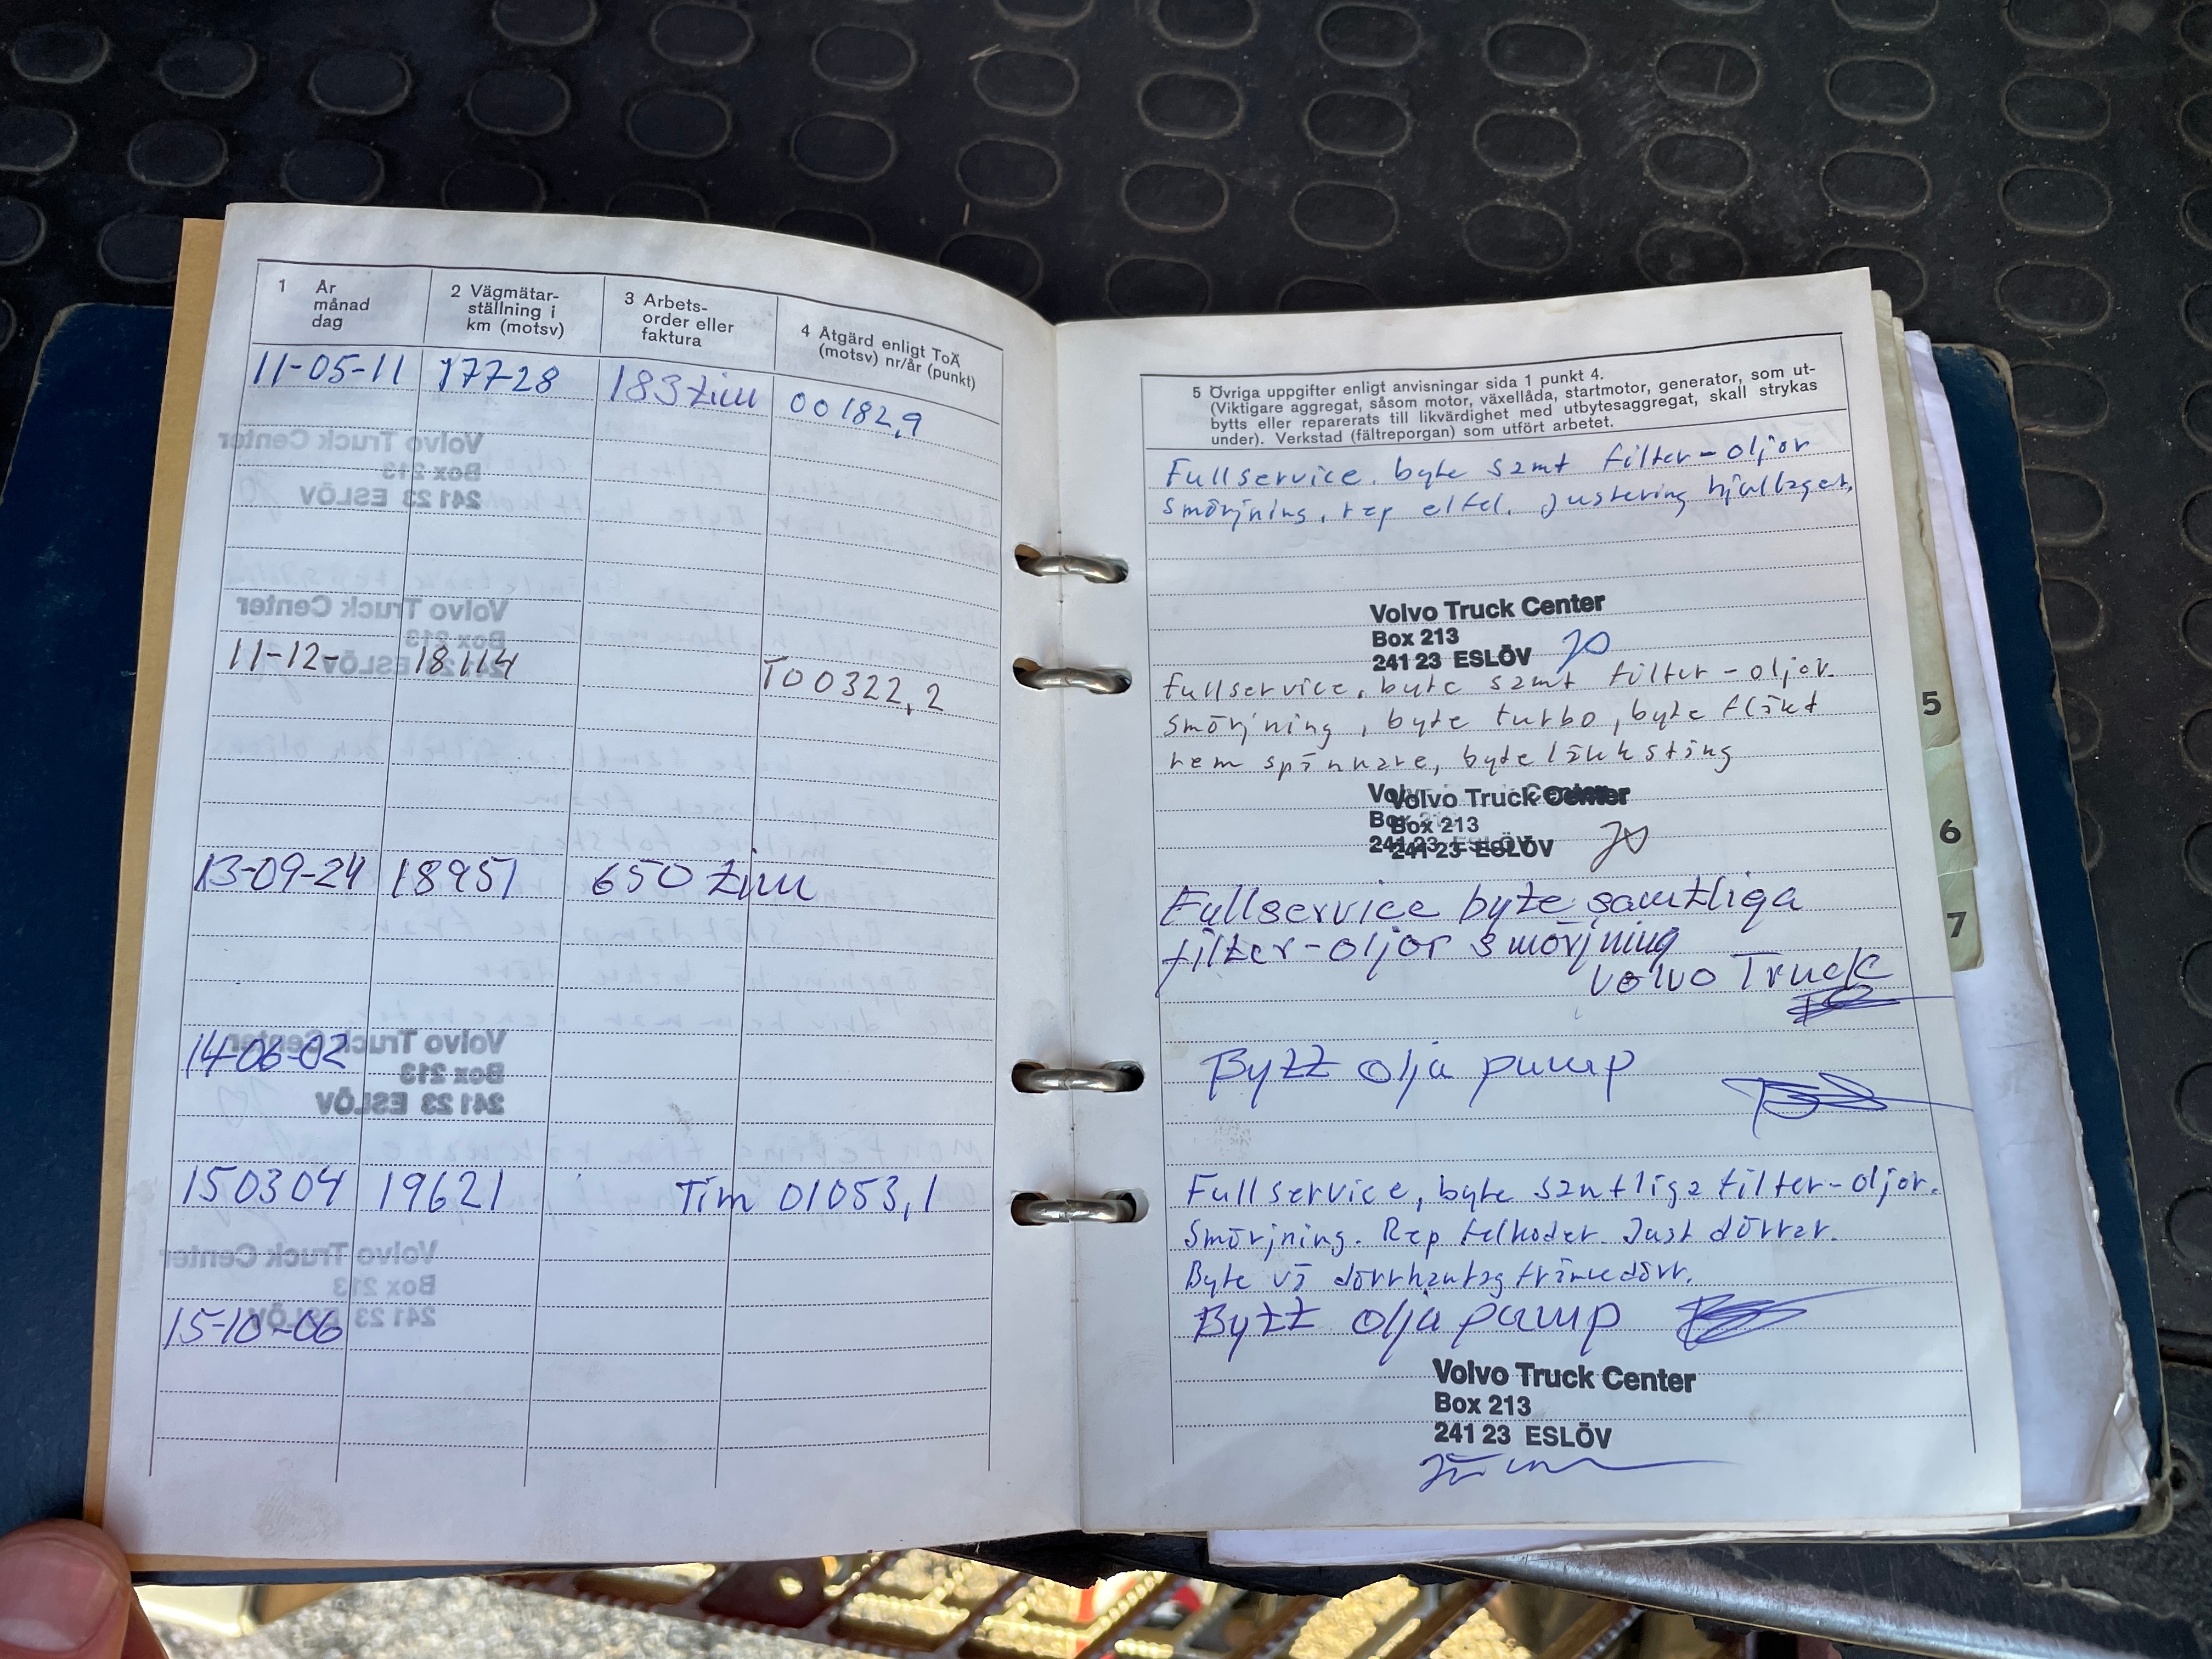 1 År
månad
dag
2 Vägmätar-
ställning i
km (motsv)
3 Arbets-
order eller
faktura
4 Åtgärd enligt ToÄ
(motsv) nr/år (punkt)
11-05-11 17728 183 tim 00182,9
11-12- 18114 T00322,2
13-09-24 18951 650 tim
14-06-02
150304 19621 Tim 01053,1
15-10-06
5 Övriga uppgifter enligt anvisningar sida 1 punkt 4.
(Viktigare aggregat, såsom motor, växellåda, startmotor, generator, som ut-
bytts eller reparerats till likvärdighet med utbytesaggregat, skall strykas
under). Verkstad (fältreporgan) som utfört arbetet.
Fullservice. byte samt filter-oljor
smörjning, rep elfel. Justering hjullager,
Volvo Truck Center
Box 213
241 23 ESLÖV
Fullservice, byte samt filter-oljor.
smörjning, byte turbo, byte fläkt
rem spännare, byte länkstång
Volvo Truck Center
Box 213
241 23 ESLÖV
Fullservice byte samtliga
filter-oljor smörjning
Volvo Truck
Bytt olja pump
Fullservice, byte samtliga filter-oljor.
Smörjning. Rep felkoder. Just dörrar.
Byte vä dörrhantag främredörr.
Bytt olja pump
Volvo Truck Center
Box 213
241 23 ESLÖV
5
6
7